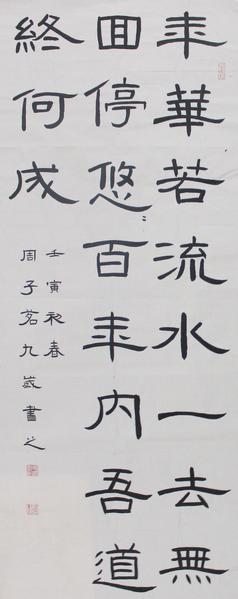 年華若流水一去無
回停悠〻百年內吾道
終何成
壬寅初春
周子茗九歲書之